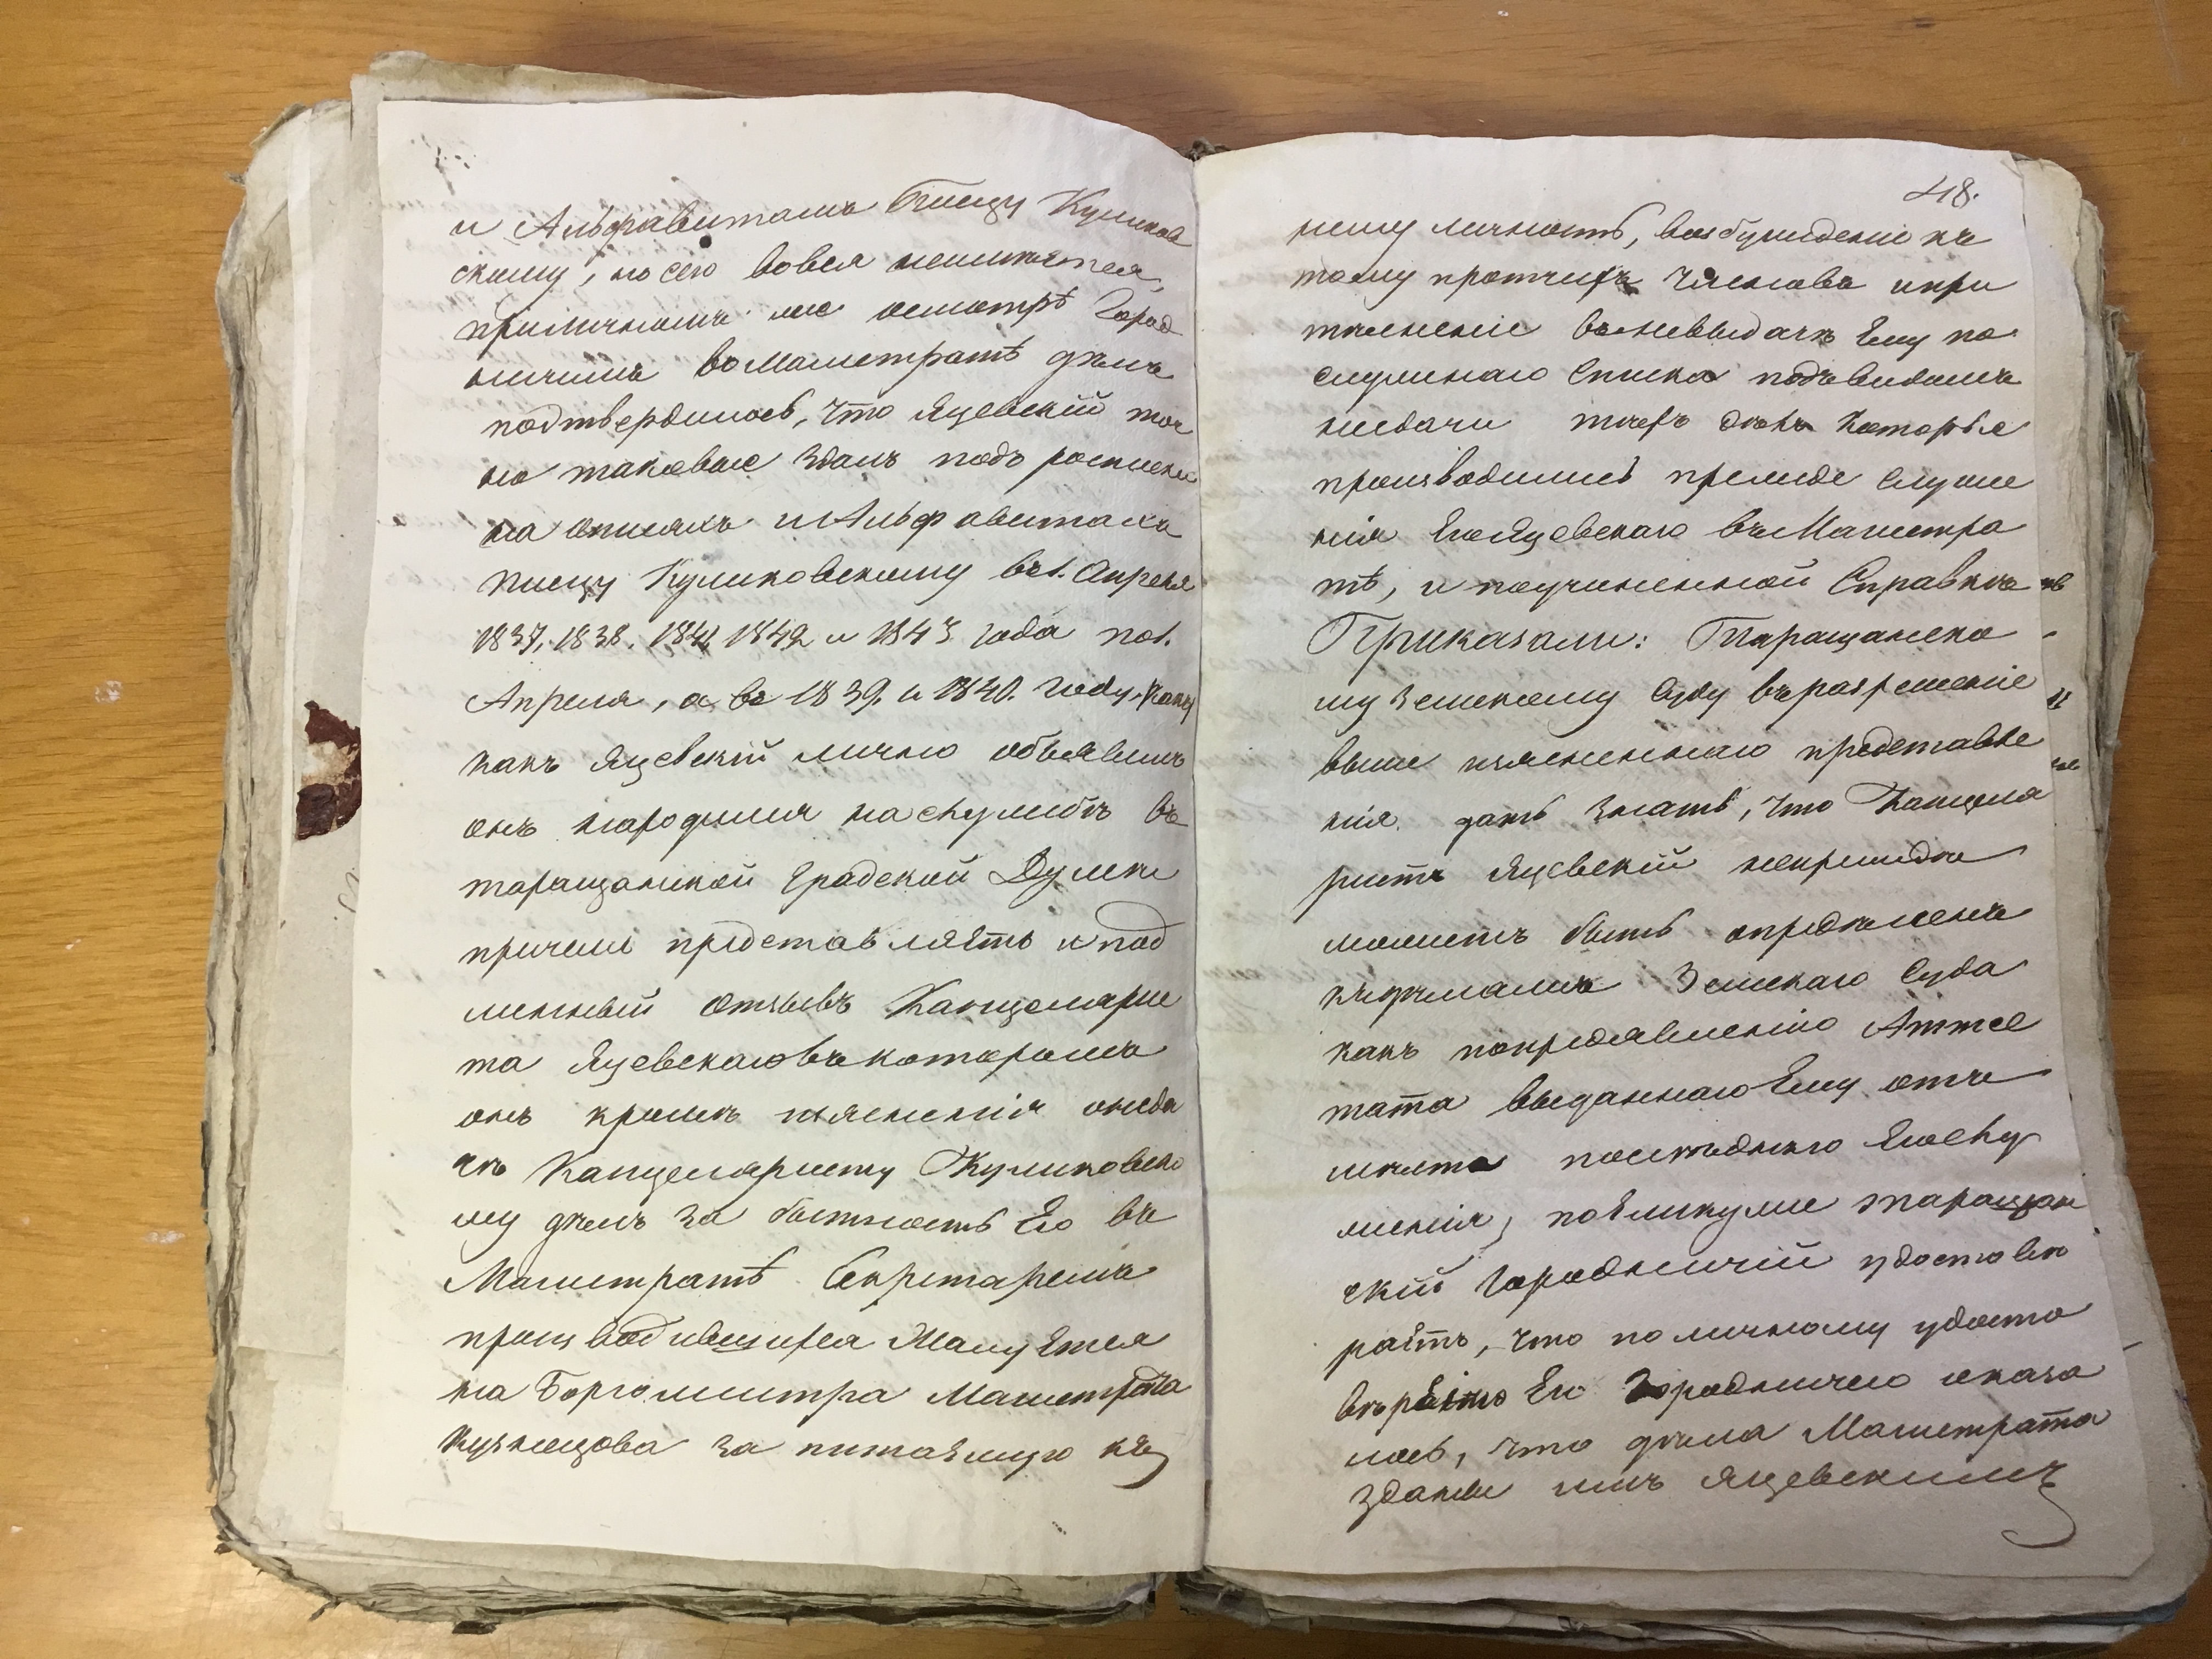 и Альфавитамъ Писцу Куликов
скому, но сего вовся неимеется,
приличномъ же осмотрѣ Город
ничимъ воМагистратѣ дѣлъ
подтвердилось, что Яцевскій точ
но таковые здалъ подъ росписки
на описяхъ иАльфавитахъ
писцу Куликовскому въ 1. Апреля
1837, 1838. 1841 1842 и 1843 года по 1.
Апреля, а въ 1839. и 1840. году,
какъ Яцевскій лично объявилъ
онъ находился наслужбѣ въ
таращанской Градской Думѣ
причемъ представляетъ и под
линный отзывъ Канцеляри
та Яцевскаго въкоторомъ
онъ кромѣ изясненія оздa
чѣ Канцеляристу Куликовско
му дѣлъ за бытность Его въ
Магистратѣ Секретаремъ
производившихся Жалуется
на Боргомистра Магистрата
Кузнецова за питаемую къ
48.
нему личность, возбужденіе къ
тому протчихъ Членовъ и при
тесненіе въневыдачѣ Ему по
служнаго Списка подъвидомъ
нездачи тѣхъ дѣлъ которые
производились прежде служе
нія ЕгоЯцевскаго въМагистра
тѣ, и поучиненной Справкѣ
Приказали: Таращанско
му Земскому Суду въразрешеніе
выше изясненнаго представле
нія дать знать, что Канцеля
ристъ Яцевскій непрежде
можетъ быть определенъ
къдѣламъ Земскаго Суда
какъ попредявленію Аттес
тата выданнаго Ему отъ
мѣста последнего Егослу
женія, поеликуже таращан
скій Городничій удостове
раетъ, что поличному удосто
веренію Его Городничего оказа
лось, что дѣла Магистрата
зданы имъ Яцевскимъ